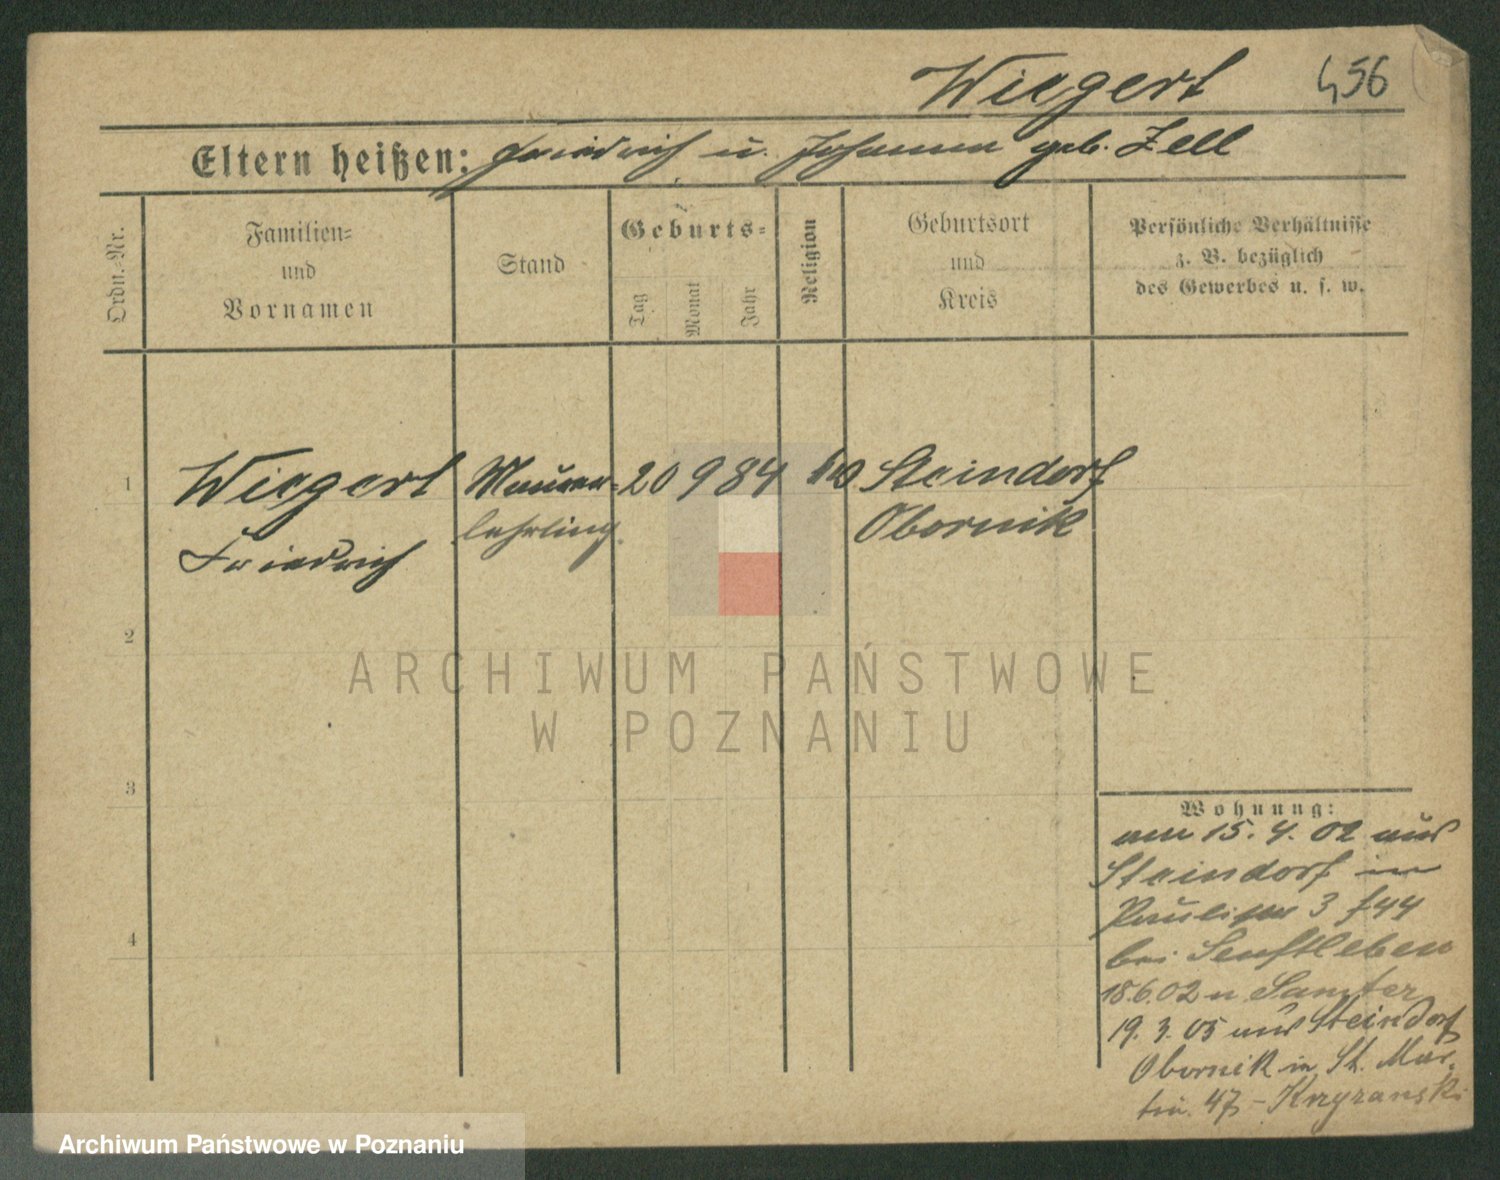 Wiegert 456
Eltern heißen: Friedrich u. Johanna geb. Zell
Ordn.-Nr.
Familien-
und
Vornamen
Stand
Geburts-
Tag
Monat
Jahr
Religion
Geburtsort
und
Kreis
Persönliche Verhältnisse
z. B. bezüglich
des Gewerbes u. s. w.
1
Wiegert
Friedrich
Maurer-
lehrling
20 9 84
Steindorf
Obornik
2
3
4
ARCHIWUM PAŃSTWOWE
W POZNANIU
Wohnung:
15. 4. 02 aus
Steindorf in
3
bei Senftleben
18.6.02 n Samter
19. 3. 05 aus Steindorf
Obornik in St. Mar-
tin. 47 - Krzyzanski
Archiwum Państwowe w Poznaniu